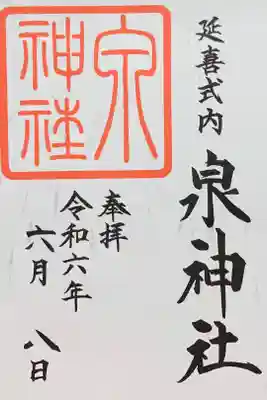 延喜式内
泉神社
奉拝
令和六年
六月 八日
泉
神社